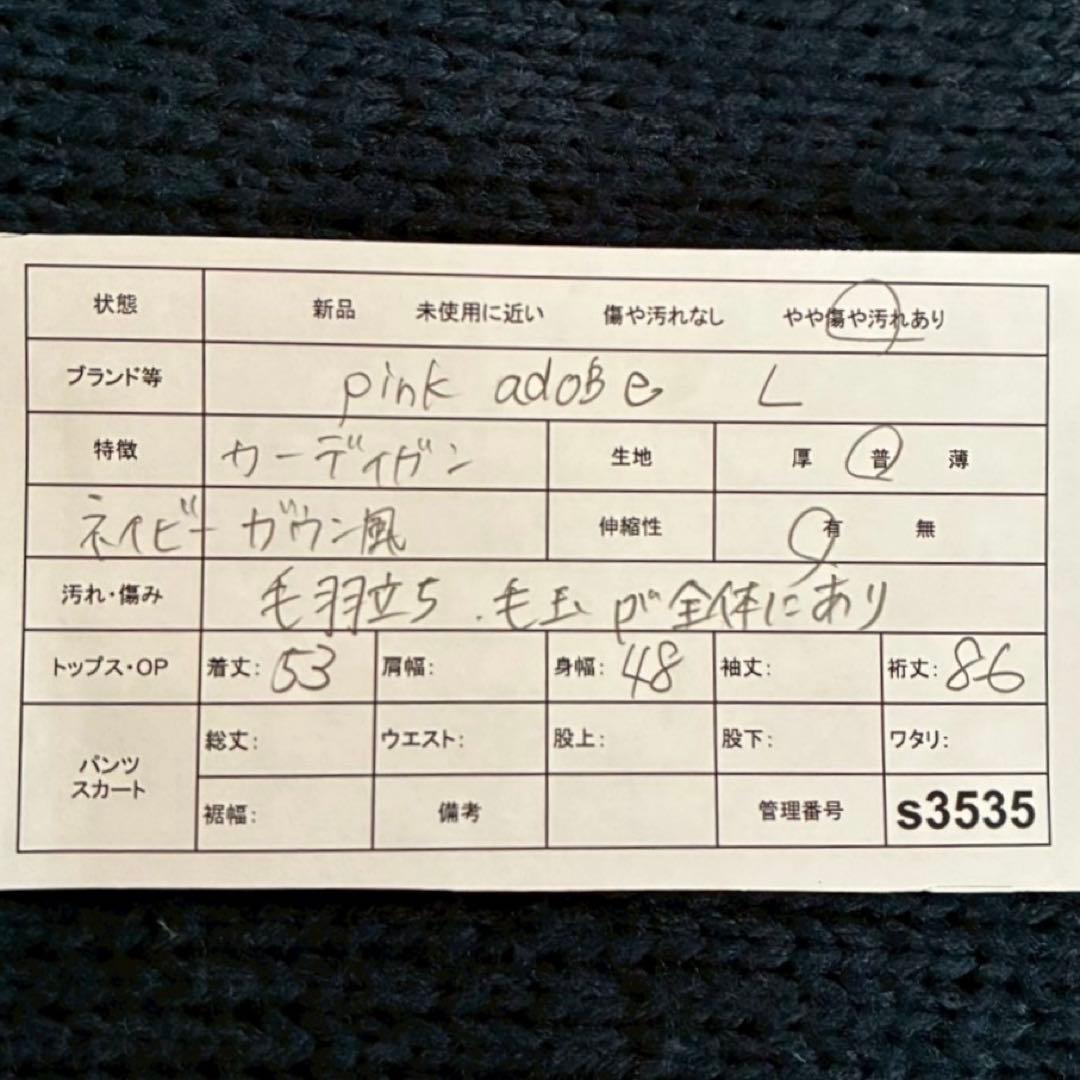 状態 新品 未使用に近い 傷や汚れなし やや傷や汚れあり
ブランド等 pink adoBe L
特徴 カーディガン 生地 厚 普 薄
ネイビー ガウン風 伸縮性 有 無
汚れ・傷み 毛羽立ち、毛玉が全体にあり
トップス・OP 着丈: 53 肩幅: 身幅: 48 袖丈: 裄丈: 86
パンツ スカート 総丈: ウエスト: 股上: 股下: ワタリ:
裾幅: 備考 管理番号 s3535